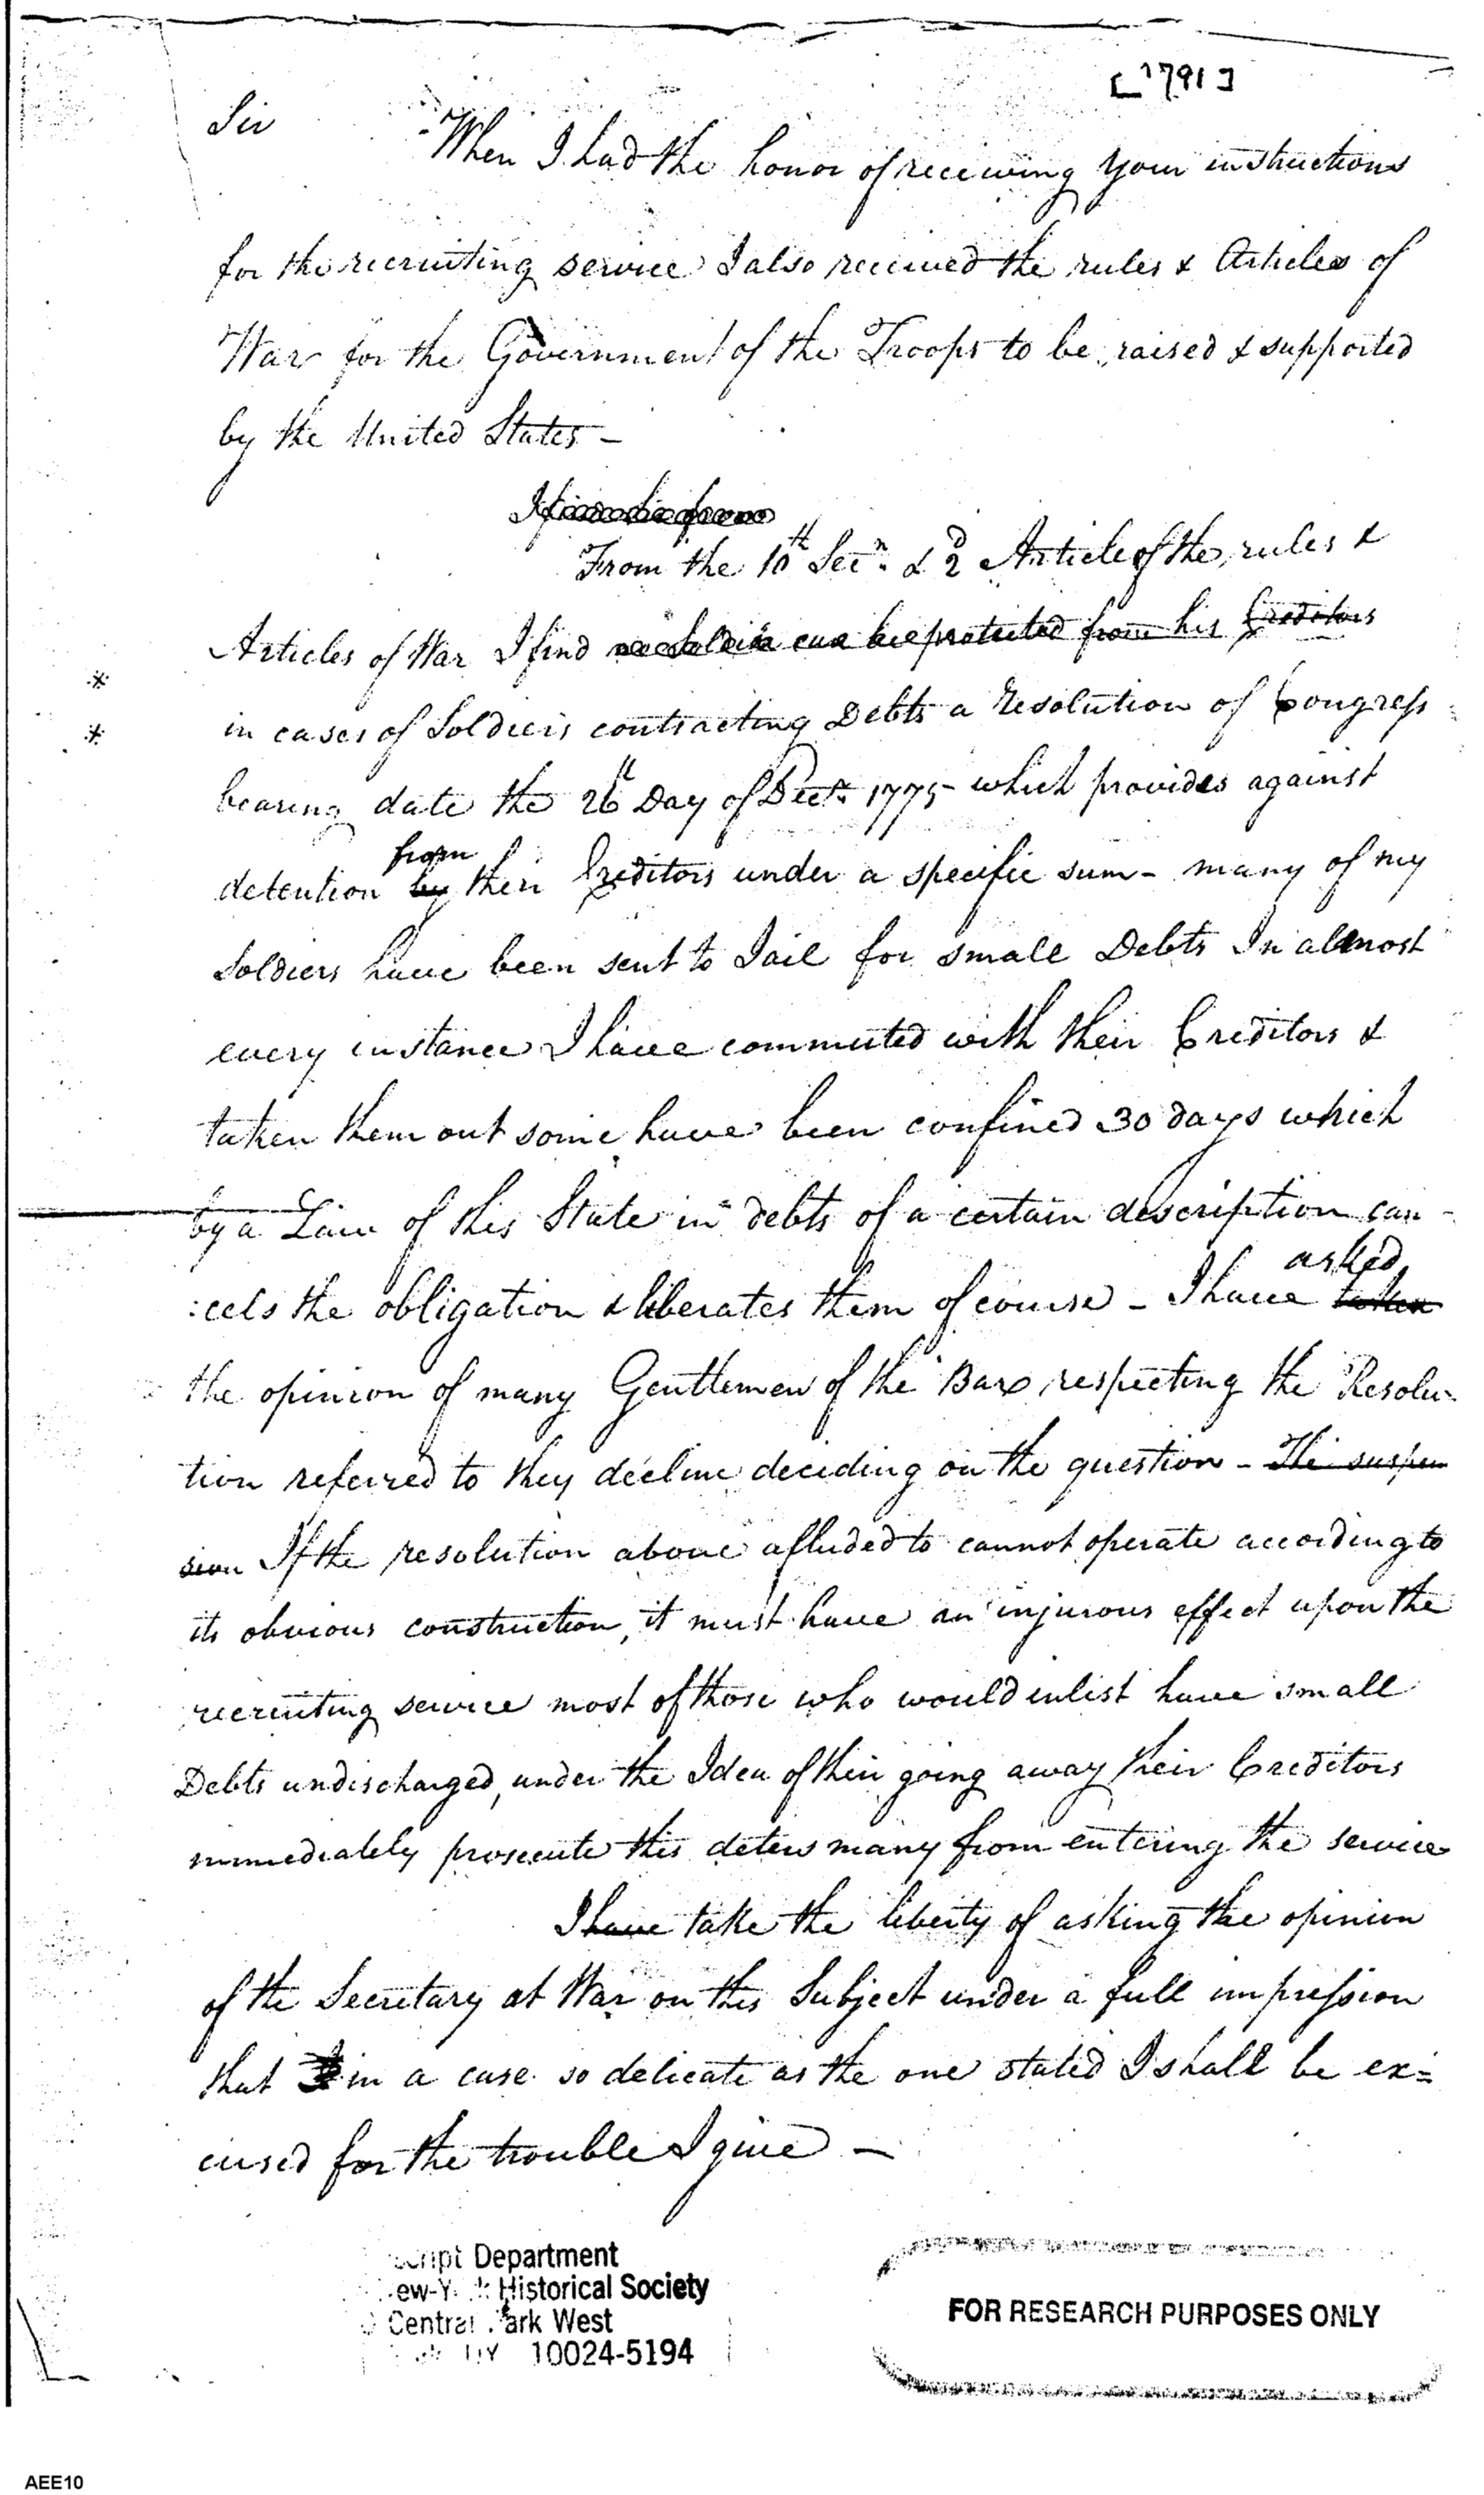 [1791]
Sir
When I had the honor of receiving your instructions
for the recruiting service I also received the rules & Articles of
War for the Government of the Troops to be raised & supported
by the United States -
From the 10th Secn. & 2d Article of the rules &
Articles of War I find no Soldier can be protected from his Creditors
* in cases of Soldiers contracting Debts a Resolution of Congress
* bearing date the 26th Day of Decr. 1775 which provides against
from
detention by their Creditors under a specific sum - many of my
Soldiers have been sent to Jail for small Debts In allmost
every instance I have commuted with their Creditors &
taken them out some have been confined 30 days which
by a Law of this State in debts of a certain description can-
:cels the obligation & liberates them of course - I have taken
asked
the opinion of many Gentlemen of the Bar respecting the Resolu-
tion referred to they decline deciding on the question - The suspen
sion If the resolution above alluded to cannot operate according to
its obvious construction, it must have an injurous effect upon the
recruiting service most of those who would inlist have small
Debts undischarged, under the Idea of their going away their Creditors
immediately prosecute this deters many from entering the service
I have take the liberty of asking the opinion
of the Secretary at War on this Subject under a full impression
that in a case so delicate as the one stated I shall be ex=
cused for the trouble I give -
Department
Historical Society
Central Park West
10024-5194
FOR RESEARCH PURPOSES ONLY
AEE10